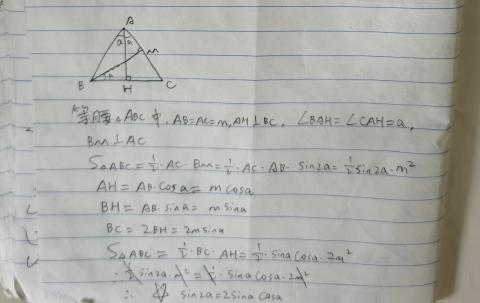 A
a a
M
B a H C
等腰△ABC中, AB=AC=m, AH⊥BC, ∠BAH=∠CAH=a,
BM⊥AC
S△ABC=½·AC·BM=½·AC·AB·sin2a=½sin2a·m²
AH=AB·cosa=mcosa
BH=AB·sina=msina
BC=2BH=2msina
S△ABC=½·BC·AH=½·sinacosa·2m²
∴½sin2a·m²=½·sinacosa·2m²
∴ sin2a=2sinacosa